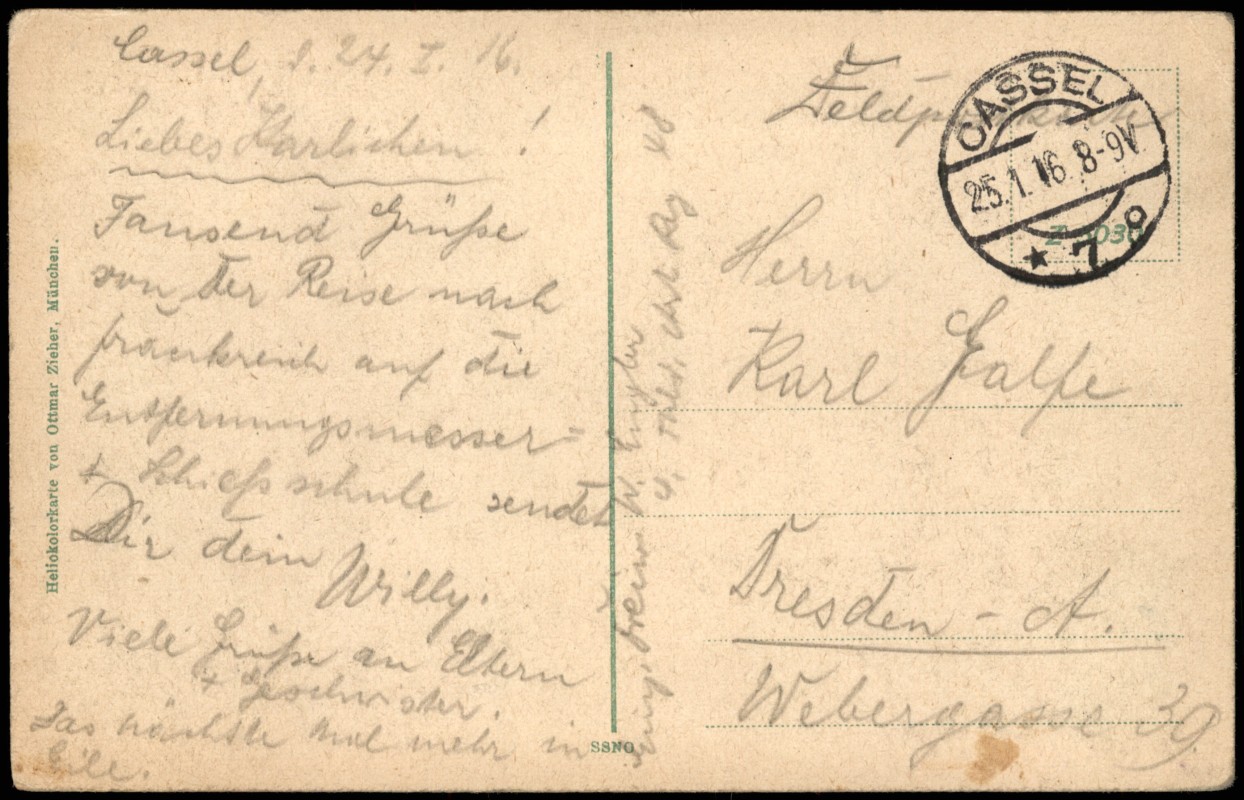 Cassel, d. 24. I. 16.
Liebes Karlichen!
Tausend Grüße
von der Reise nach
Frankreich auf die
Entfernungsmesser-
+ Schießschule sendet
Dir dein
Willy.
Viele Grüße an Eltern
+ Geschwister.
Das nächste Mal mehr in
Eile.
Heliokolorkarte von Ottmar Zieher, München.
SSNO
W. 
4. Feld. Art. Rg 48
Feldpostkarte
CASSEL
25.1.16. 8-9V
* 7
Herrn
Karl Galfe
Dresden - A.
Webergasse 39